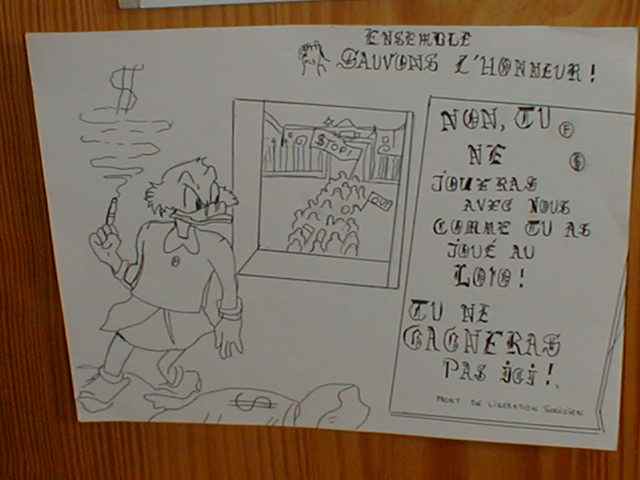 ENSEMBLE
SAUVONS L'HONNEUR !
$
STOP!
NON, TU
NE
JOUERAS
AVEC NOUS
COMME TU AS
JOUÉ AU
LOTO !
TU NE
GAGNERAS
PAS ICI !
FRONT DE LIBERATION
$